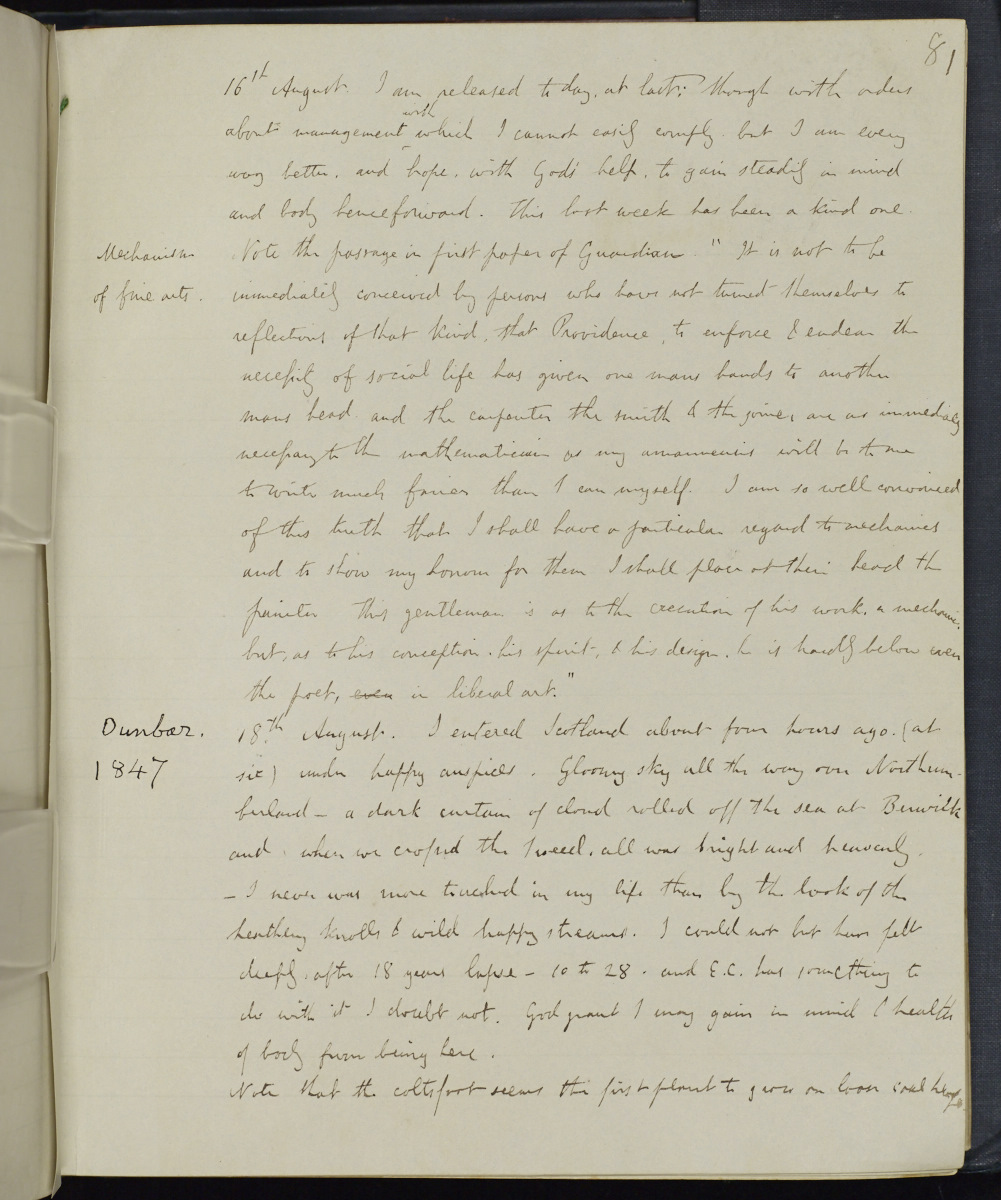 81
16th August. I am released today, at last; though with orders
about management with which I cannot easily comply. but I am every
way better. and hope. with God's help. to gain steadily in mind
and body henceforward. This last week has been a kind one.
Mechanism
of fine arts.
Note the passage in first paper of Guardian " It is not to be
immediately conceived by persons who have not turned themselves to
reflections of that kind, that Providence, to enforce & endear the
necessity of social life has given one mans hands to another
mans head. and the carpenter the smith & the joiner are as immediately
necessary to the mathematician as my amanuensis will be to me
to write much fairer than I can myself. I am so well convinced
of this truth that I shall have a particular regard to mechanics
and to show my honour for them I shall place at their head the
painter This gentleman is as to the execution of his work, a mechanic.
but, as to his conception. his spirit, & his design. he is hardly below even
the poet, even in liberal art."
Dunbar.
1847
18th August. I entered Scotland about four hours ago. (at
six) under happy auspices. Gloomy sky all the way over Northum-
berland - a dark curtain of cloud rolled off the sea at Berwick
and. when we crossed the Tweed. all was bright and heavenly.
- I never was more touched in my life than by the look of the
heathery knolls & wild happy streams. I could not but have felt
deeply. after 18 years lapse - 10 to 28. and E.C. has something to
do with it I doubt not. God grant I may gain in mind & health
of body from being here.
Note that the coltsfoot seems the first plant to grow on loose coal heaps.